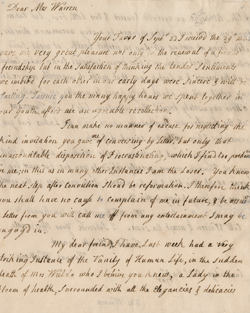 Dear Mrs Warren
Your Favor of Sept 22 I received the 29 and
gave me very great pleasure not only the renewal of a
friendship but in the Satisfaction of thinking the tender Sentiments
we imbibed for each other in our early days were Sincere &
lasting. I assure you the many happy hours we spent together in
our youth affords me an agreeable recollection.
I can make no manner of excuse for neglecting the
kind invitation you gave me of answering by letter, but only that
unaccountable disposition of Procrastinating, which I find so
me, in this as in many other Instances I am the looser. You know
the next step after conviction Shoud be reformation. I therefore think
you shall have no cause to complain of me in future, & be assured a
letter from you will call me off from any entertainment I may be
engag'd in.
My dear friend, I have Last week had a very
striking Instance of the Vanity of Human Life, in the sudden
death of Mrs Waldo who I believe you knew, a Lady in the
bloom of health, Surrounded with all the Elegancies & delicacies